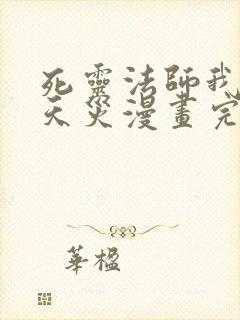 死靈法師我
天災漫畫完
華楹